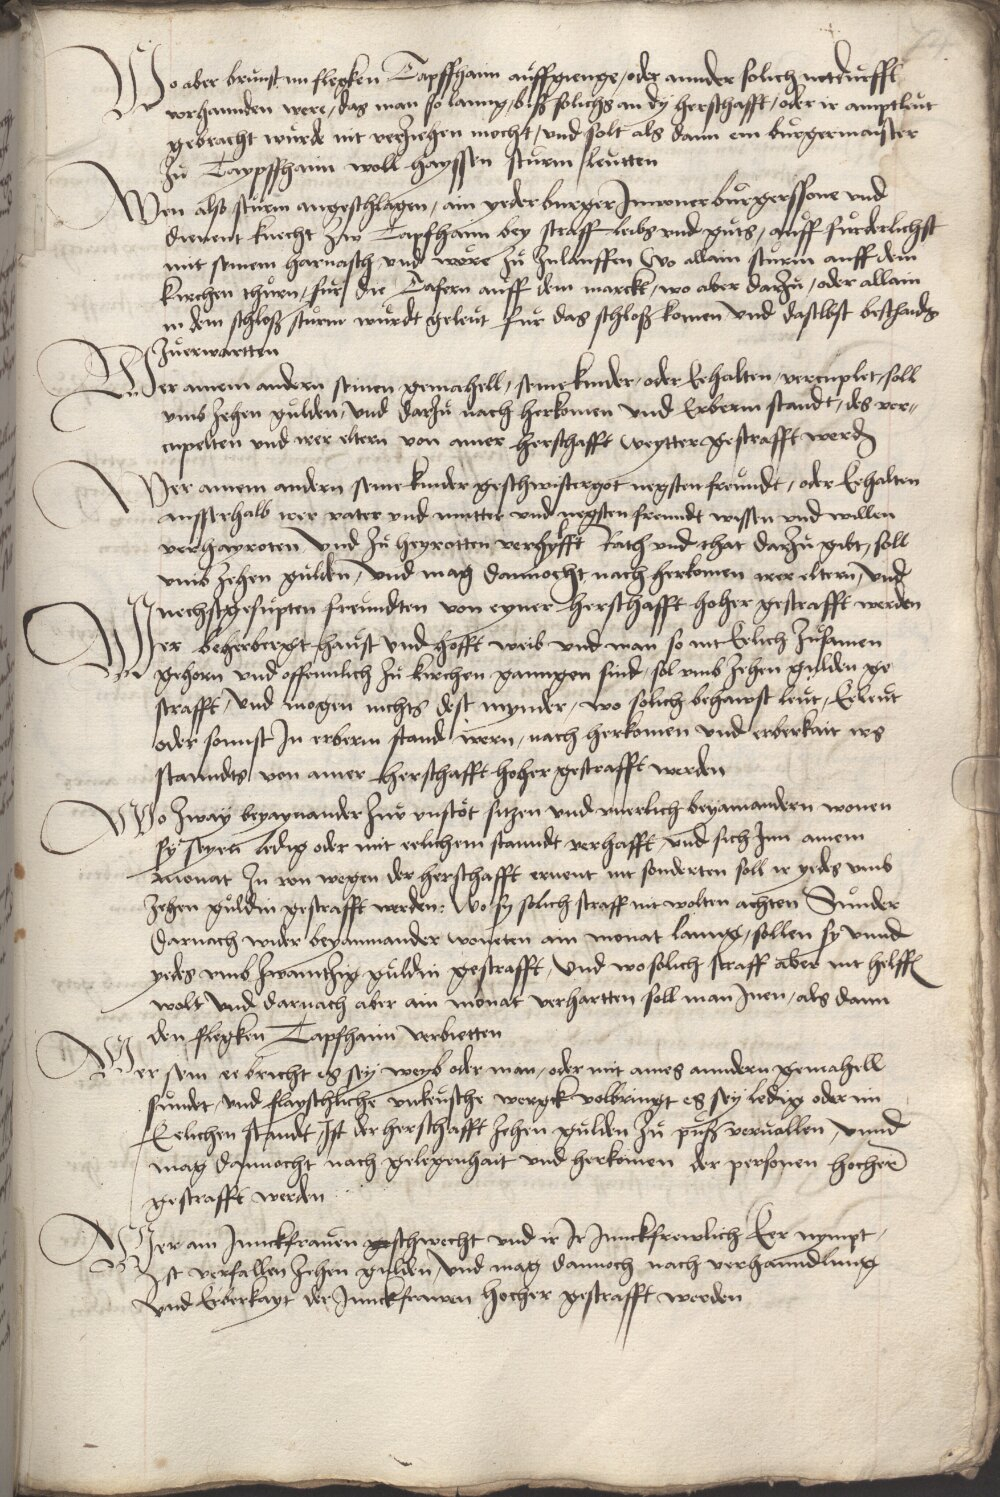 Wo aber brunst im flecken Tapffhaim auffgienge / oder annder solich notdurfft
vorhannden were / das man so lanng / biß solichs an dy herschafft / oder ir amptleut
gebracht wurde nit verziehen mocht / und solt als dann ein burgermaister
zu Tappffhaim woll hayssen sturm leutten
Wen also sturm angeschlagen / ain yeder burger Inwoner burgerssone und
dienent knecht zw Tapfhaim bey straff leibs und guts / auff furderlichst
mit seinem harnasch und were zu zulauffen Wo allain sturm auff dem
kirchen thurn / fur die Tafern auff dem marckt / wo aber darzu / oder allain
in dem schloß sturm wurdt geleut fur das schloß komen und daselbst beschaids
zuerwartten
Wer ainem andern seinen gemahell / seine kinder / oder Eehalten / vercuplet / soll
umb zehen gulden / und darzu nach herkomen und Erberm standt / des ver-
cupelten und irer eltern von ainer herschafft weytter gestrafft werden
Wer ainem andern seine kinder geschwistergot negsten freundt / oder Eehalten
ausserhalb irer vater und mutter und negsten freundt wissen und willen
verhayroten und zu heyrotten verhylfft Rath und that darzu gibt / soll
umb zehen gulden / und mag dannocht nach herkomen irer eltern / und
nechstgesupten freundten von eyner herschafft hoher gestrafft werden
Wer beherbergt haust und hofft weib und man so nit Eelich zusamen
gehorn und offennlich zu kirchen ganngen sind / sol umb zehen gulden ge
strafft / und mogen nichts dest mynder / wo solich behawst leut / Eeleut
oder sonnst In erberm stand wern / nach herkomen und erberkait irs
stanndts von ainer herschafft hoher gestrafft werden
Wo zway beyaynander zw unstot sitzen und unerlich beyainandern wonen
sy seyen ledig oder mit eelichem stanndt verhafft und sich Inn ainem
monat In von wegen der herschafft ernent nit sonderten soll ir yedes umb
zehen guldin gestrafft werden: Wo sy solich straff nit wolten achten Sunder
darnach wider beyainnander woneten ain monat lanng / sollen sy unnd
yedes umb zwaintzig guldin gestrafft / und wo solich straff aber nit helffen
wolt und darnach aber ain monat verhartten soll man Inen / als dann
den flegken Tapfhaim verbietten
Wer sein ee bricht es sey weyb oder man / oder mit aines anndern gemahell
sundet / und flayschliche unkeusche wergk volbringt es sey ledig oder im
Eelichen standt / Ist der herschafft zehen gulden zu puß vervallen / unnd
mag dannocht nach gelegenhait und herkomen der personen hocher
gestrafft werden
Wer ain Junckfrauen geschwecht und ir Ir Junckfrewlich Eer nympt /
Ist verfallen zehen gulden / und mag dannoch nach verhanndlung
und Erberkayt der Junckfrawen hocher gestrafft werden